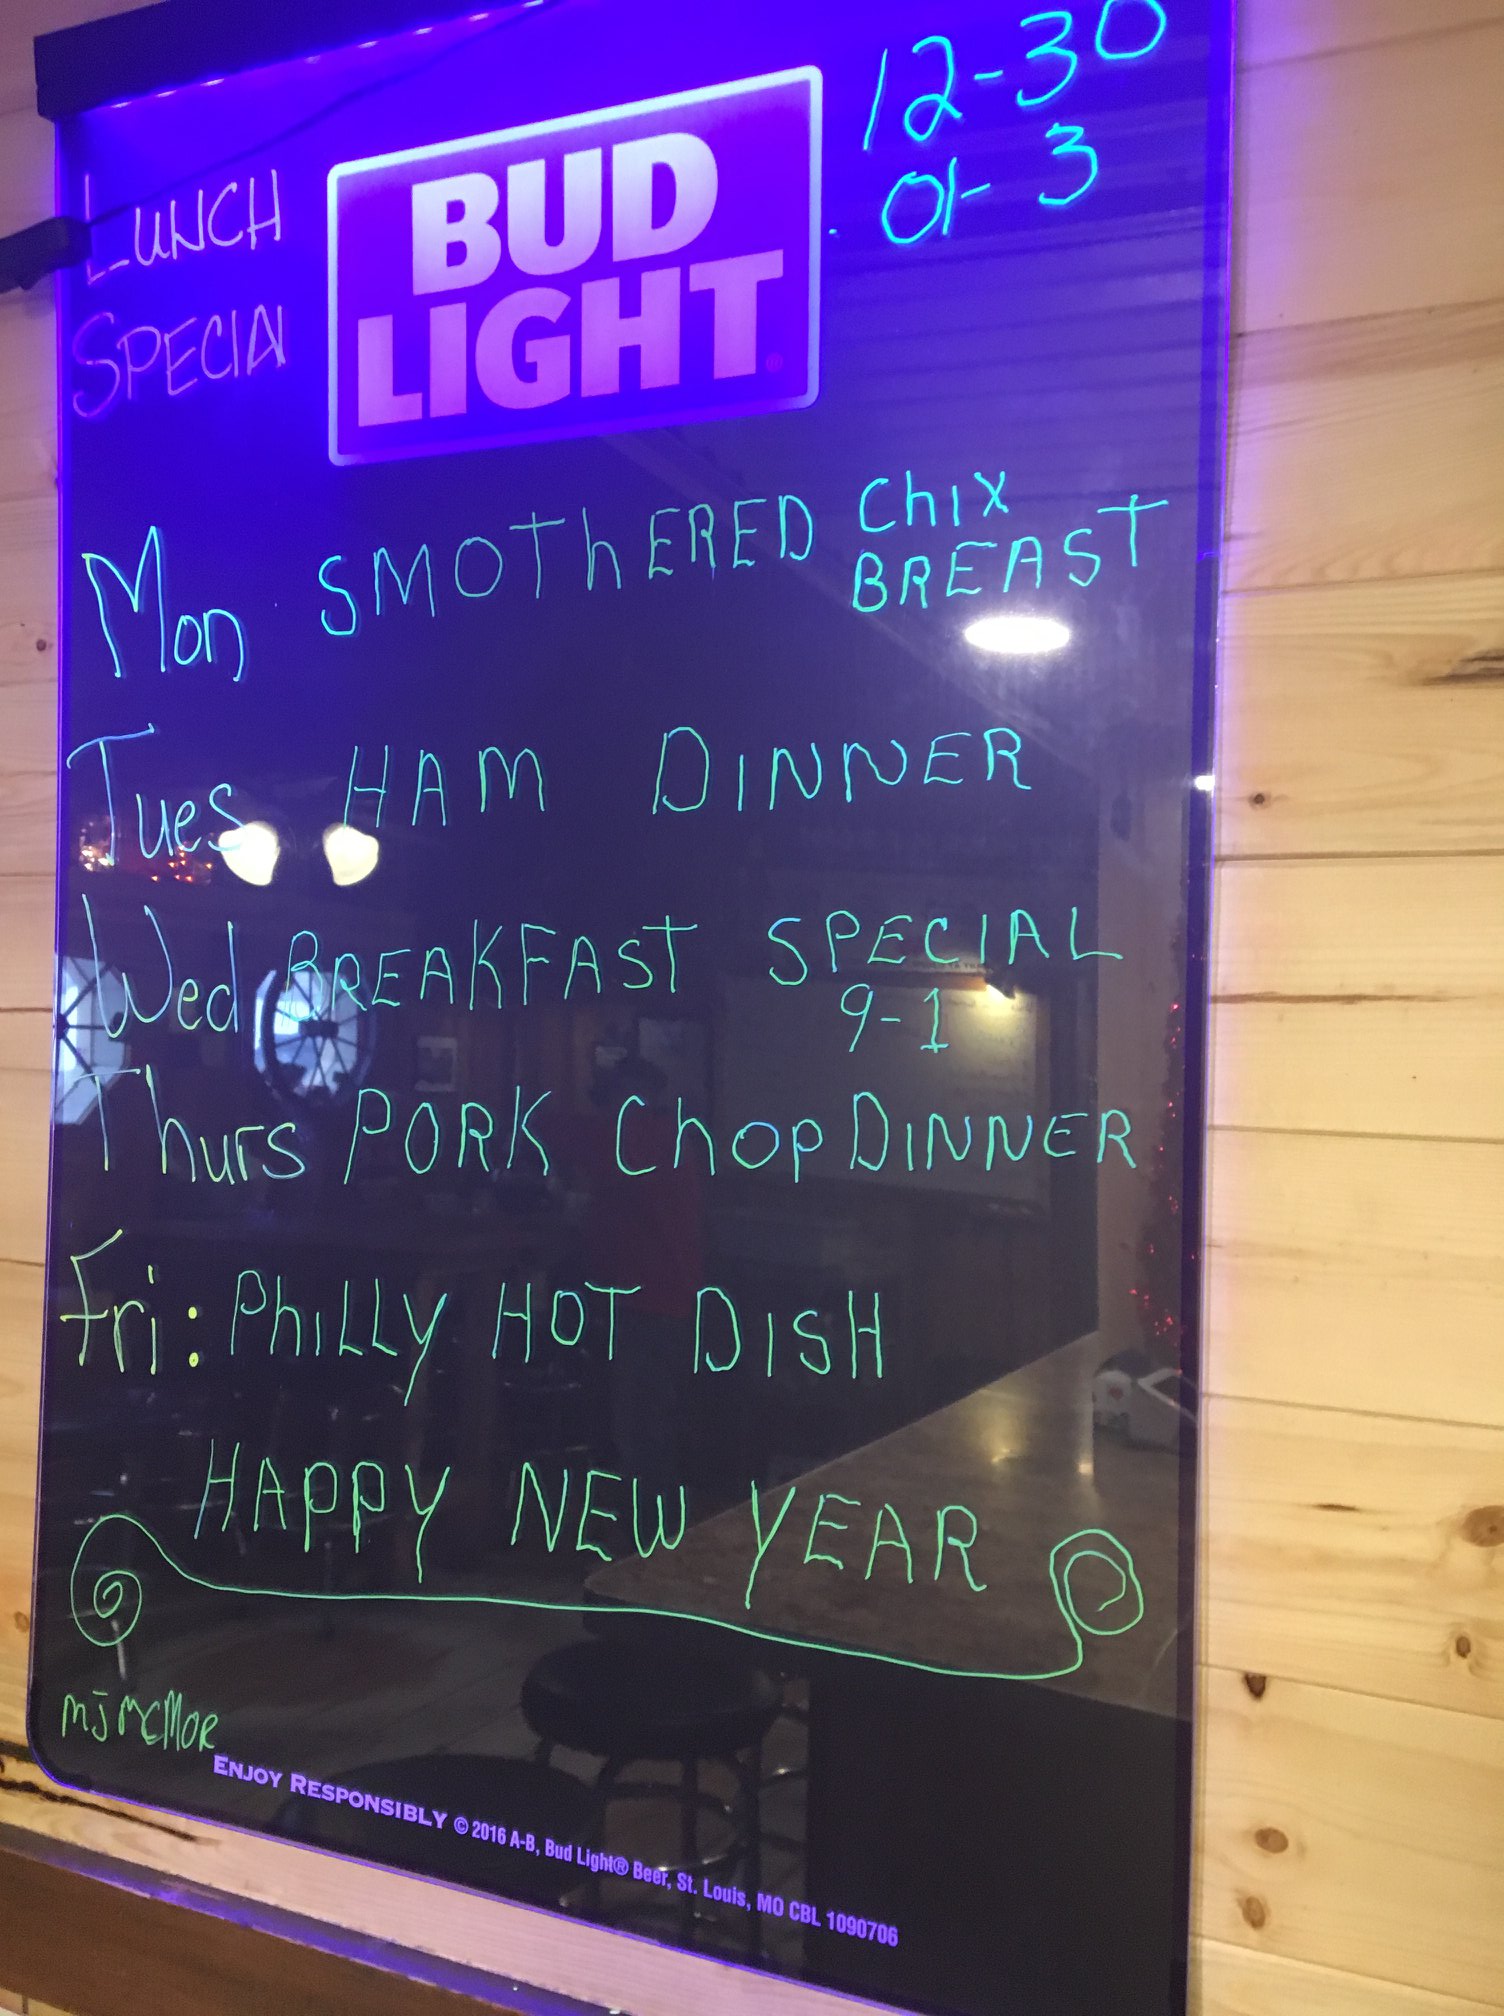 12-30
01-3
LUNCH
SPECIAl
BUD
LIGHT
Mon SMOThERED Chix
BREAST
Tues HAM DINNER
Wed BREAKFAST SPECIAL
9-1
Thurs PORK Chop DINNER
Fri: PhiLLY HOT DISH
HAPPY NEW YEAR
MJ MCMOR
ENJOY RESPONSIBLY © 2016 A-B, Bud Light® Beer, St. Louis, MO CBL 1090706